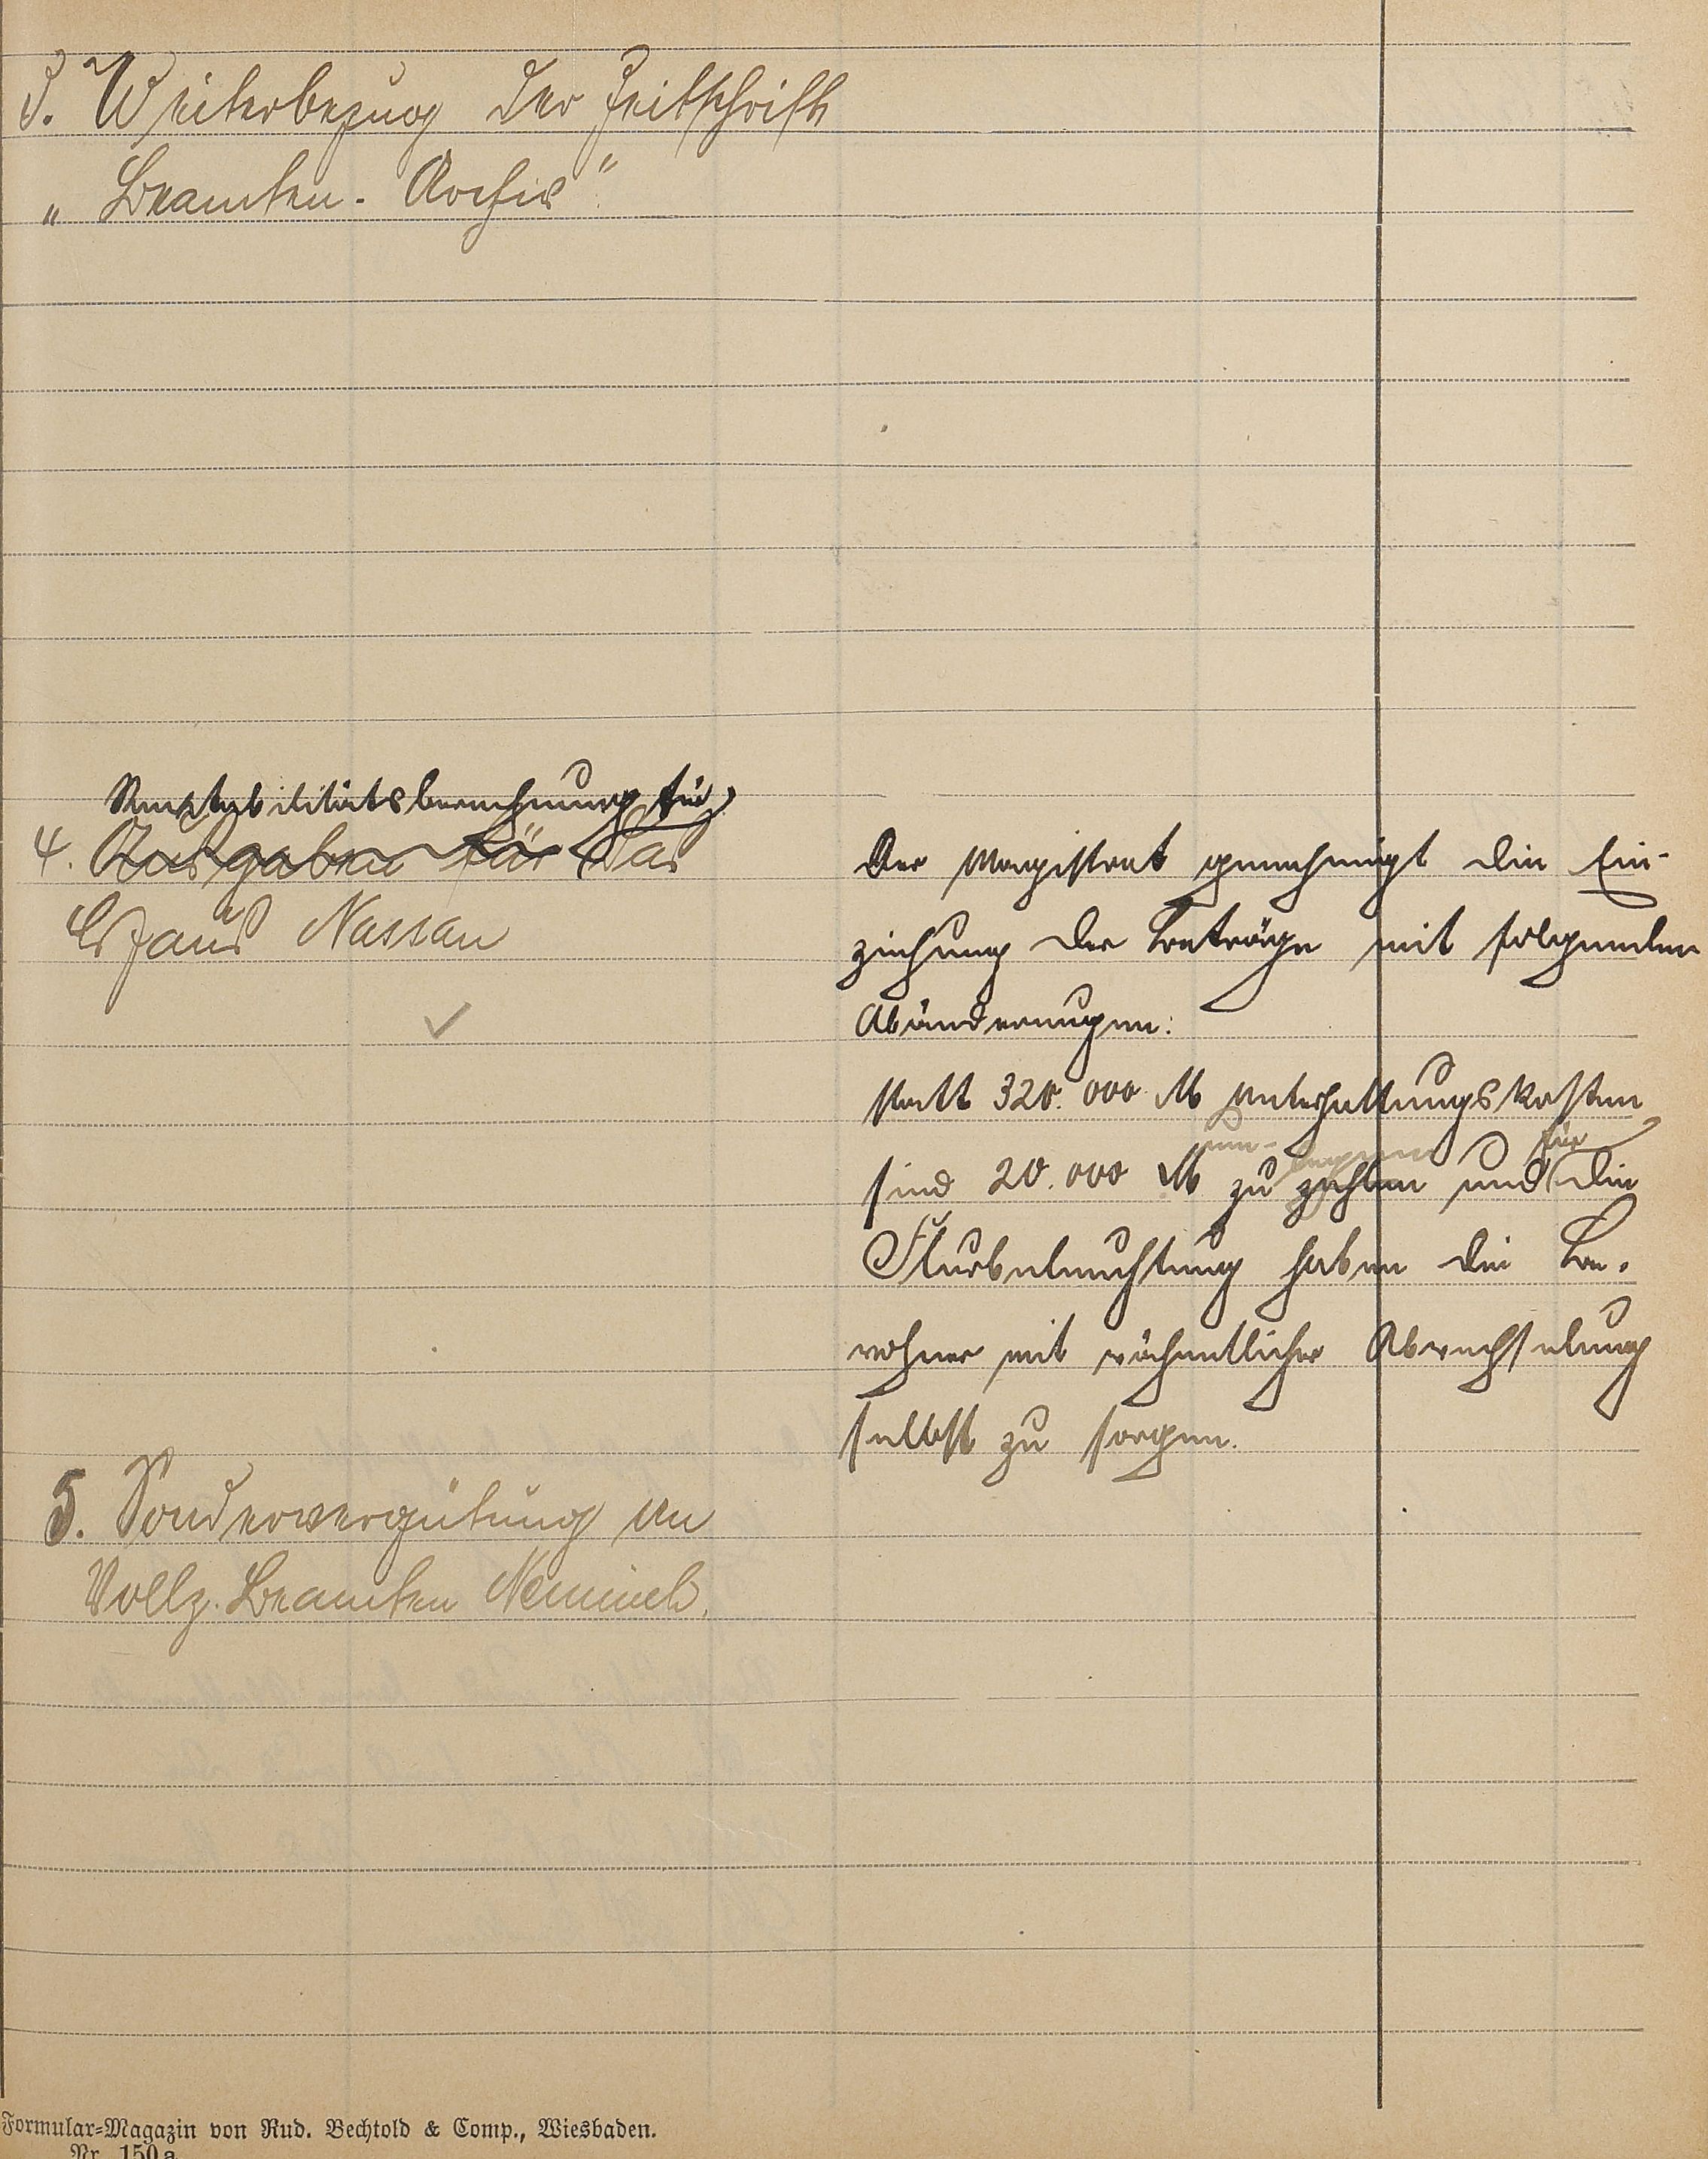 3. Weiterbezug der Zeitschrift
„Beamten-Archiv“
Rentabilitätsberechnung für
4. Ausgaben für das
Ehaus Nassau
Der Magistrat genehmigt die Ein-
ziehung der Beträge mit folgenden
Abänderungen:
Statt 320.000 M Unterhaltungskosten
um- für
sind 20.000 M zu zahlen und die
Flurbeleuchtung haben die Be-
wohner mit wöchentlicher Abwechslung
selbst zu sorgen.
5. Sondervergütung an
Vollz. Beamten
Formular-Magazin von Rud. Bechtold & Comp., Wiesbaden.
Nr. 150a